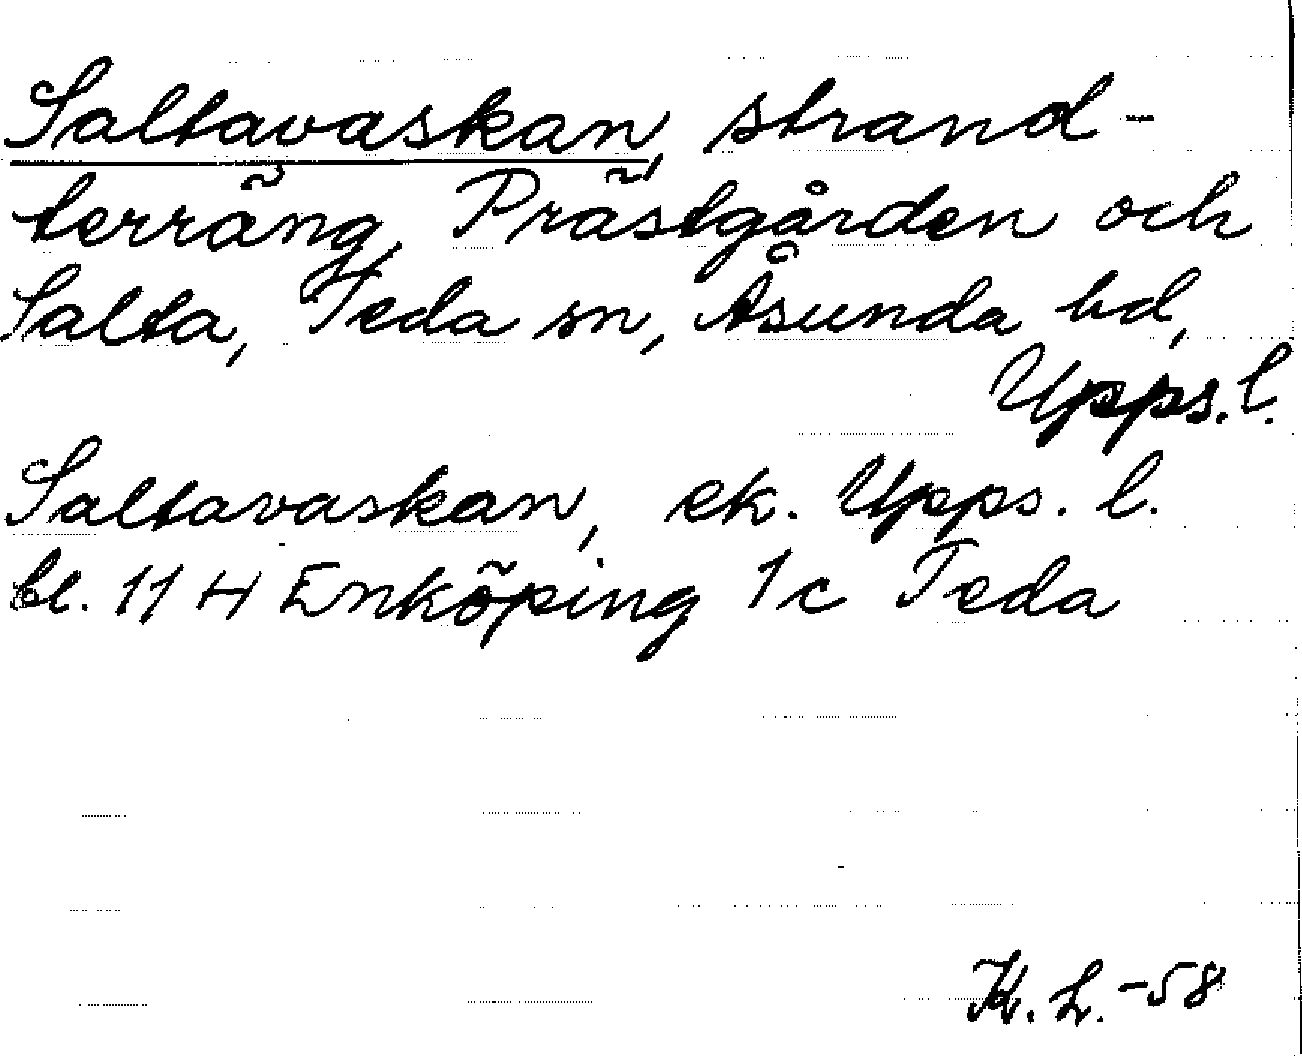 Saltavaskan, strand-
terräng, Prästgården och
Salta, Teda sn, Åsunda hd,
Upps. l.
Saltavaskan, ek. Upps. l.
bl. 11 H Enköping 1c Teda
H. L. -58